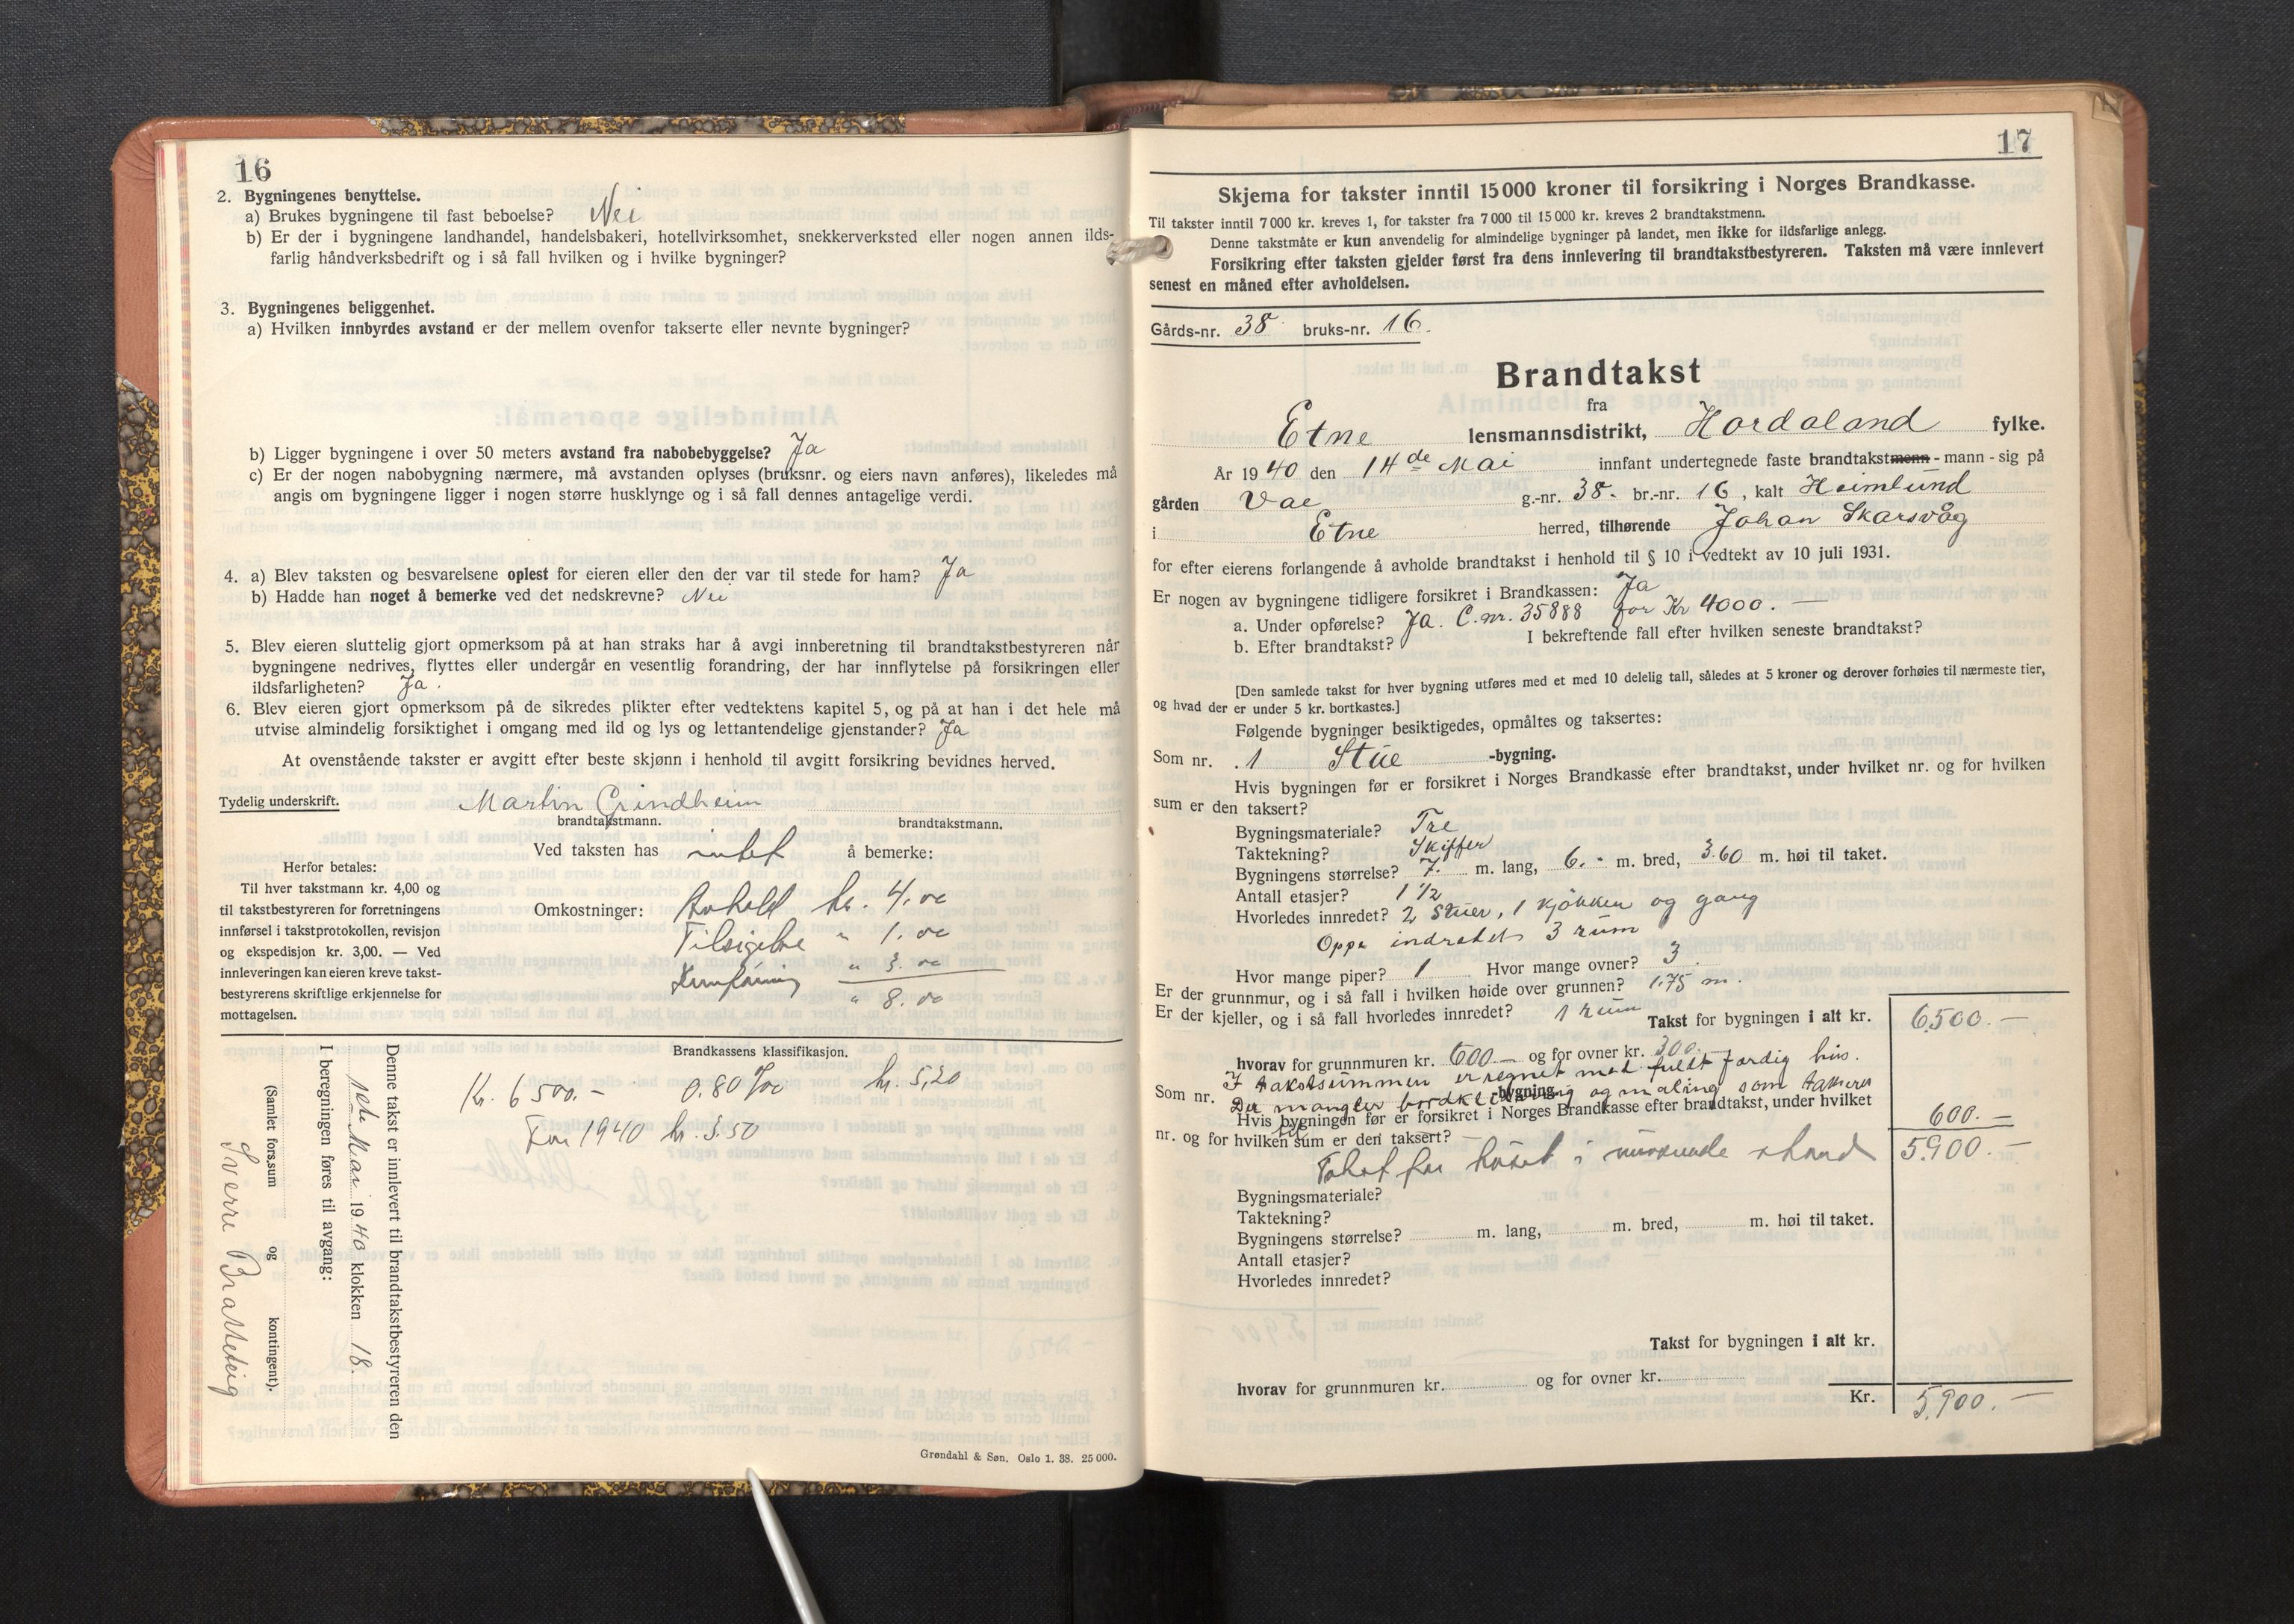 16
2. Bygningenes benyttelse.
a) Brukes bygningene til fast beboelse? Nei
b) Er der i bygningene landhandel, handelsbakeri, hotellvirksomhet, snekkerverksted eller nogen annen ilds-
farlig håndverksbedrift og i så fall hvilken og i hvilke bygninger?
3. Bygningenes beliggenhet.
a) Hvilken innbyrdes avstand er der mellem ovenfor takserte eller nevnte bygninger?
b) Ligger bygningene i over 50 meters avstand fra nabobebyggelse? Ja
c) Er der nogen nabobygning nærmere, må avstanden oplyses (bruksnr. og eiers navn anføres), likeledes må
angis om bygningene ligger i nogen større husklynge og i så fall dennes antagelige verdi.
4. a) Blev taksten og besvarelsene oplest for eieren eller den der var til stede for ham? Ja
b) Hadde han noget å bemerke ved det nedskrevne? Nei
5. Blev eieren sluttelig gjort opmerksom på at han straks har å avgi innberetning til brandtakstbestyreren når
bygningene nedrives, flyttes eller undergår en vesentlig forandring, der har innflytelse på forsikringen eller
ildsfarligheten? Ja.
6. Blev eieren gjort opmerksom på de sikredes plikter efter vedtektens kapitel 5, og på at han i det hele må
utvise almindelig forsiktighet i omgang med ild og lys og lettantendelige gjenstander? Ja
At ovenstående takster er avgitt efter beste skjønn i henhold til avgitt forsikring bevidnes herved.
Tydelig underskrift. Martin Grindheim
brandtakstmann. brandtakstmann.
Ved taksten has intet å bemerke:
Herfor betales:
Til hver takstmann kr. 4,00 og
til takstbestyreren for forretningens
innførsel i takstprotokollen, revisjon
og ekspedisjon kr. 3,00. — Ved
innleveringen kan eieren kreve takst-
bestyrerens skriftlige erkjennelse for
mottagelsen.
Omkostninger: Avhold kr. 4.00
Tilsigelse " 1.00
" 3.00
" 8.00
Brandkassens klassifikasjon.
Kr. 6500.- 0.80 ‰ kr. 5,20
For 1940 kr. 3.50
Denne takst er innlevert til brandtakstbestyreren den
Mai 1940 klokken 18.
I beregningen føres til avgang:
(Samlet fors.sum og kontingent).
Sverre Bratteteig
Grøndahl & Søn. Oslo 1. 38. 25 000.
17
Skjema for takster inntil 15 000 kroner til forsikring i Norges Brandkasse.
Til takster inntil 7 000 kr. kreves 1, for takster fra 7 000 til 15 000 kr. kreves 2 brandtakstmenn.
Denne takstmåte er kun anvendelig for almindelige bygninger på landet, men ikke for ildsfarlige anlegg.
Forsikring efter taksten gjelder først fra dens innlevering til brandtakstbestyreren. Taksten må være innlevert
senest en måned efter avholdelsen.
Gårds-nr. 38 bruks-nr. 16.
Brandtakst
fra
Etne lensmannsdistrikt, Hordaland fylke.
År 1940 den 14de Mai innfant undertegnede faste brandtakstmenn - mann - sig på
gården Vae g.-nr. 38. br.-nr. 16, kalt Heimlund
i Etne herred, tilhørende Johan Skarsvåg
for efter eierens forlangende å avholde brandtakst i henhold til § 10 i vedtekt av 10 juli 1931.
Er nogen av bygningene tidligere forsikret i Brandkassen: Ja
a. Under opførelse? Ja. C.nr. 35888 for Kr 4000.—
b. Efter brandtakst? I bekreftende fall efter hvilken seneste brandtakst?
[Den samlede takst for hver bygning utføres med et med 10 delelig tall, således at 5 kroner og derover forhøies til nærmeste tier,
og hvad der er under 5 kr. bortkastes.]
Følgende bygninger besiktigedes, opmåltes og taksertes:
Som nr. 1 Stue -bygning.
Hvis bygningen før er forsikret i Norges Brandkasse efter brandtakst, under hvilket nr. og for hvilken
sum er den taksert?
Bygningsmateriale? Tre
Taktekning? Skiffer
Bygningens størrelse? 7. m. lang, 6.- m. bred, 3.60 m. høi til taket.
Antall etasjer? 1 1/2
Hvorledes innredet? 2 Stuer, 1 kjøkken og gang
Oppe indredet 3 rum
Hvor mange piper? 1 Hvor mange ovner? 3
Er der grunnmur, og i så fall i hvilken høide over grunnen? 1.75 m.
Er der kjeller, og i så fall hvorledes innredet? 1 rum
Takst for bygningen i alt kr. 6500.—
hvorav for grunnmuren kr. 600.— og for ovner kr. 300.—
I takstsummen er regnet med fuldt færdig hus.
Som nr. -bygning.
Der mangler bordklædning og maling som takseres
til 600.—
Hvis bygningen før er forsikret i Norges Brandkasse efter brandtakst, under hvilket
nr. og for hvilken sum er den taksert?
Takst for huset i nuværende stand 5900.—
Bygningsmateriale?
Taktekning?
Bygningens størrelse? m. lang, m. bred, m. høi til taket.
Antall etasjer?
Hvorledes innredet?
Takst for bygningen i alt kr.
hvorav for grunnmuren kr. og for ovner kr.
Kr. 5.900.—